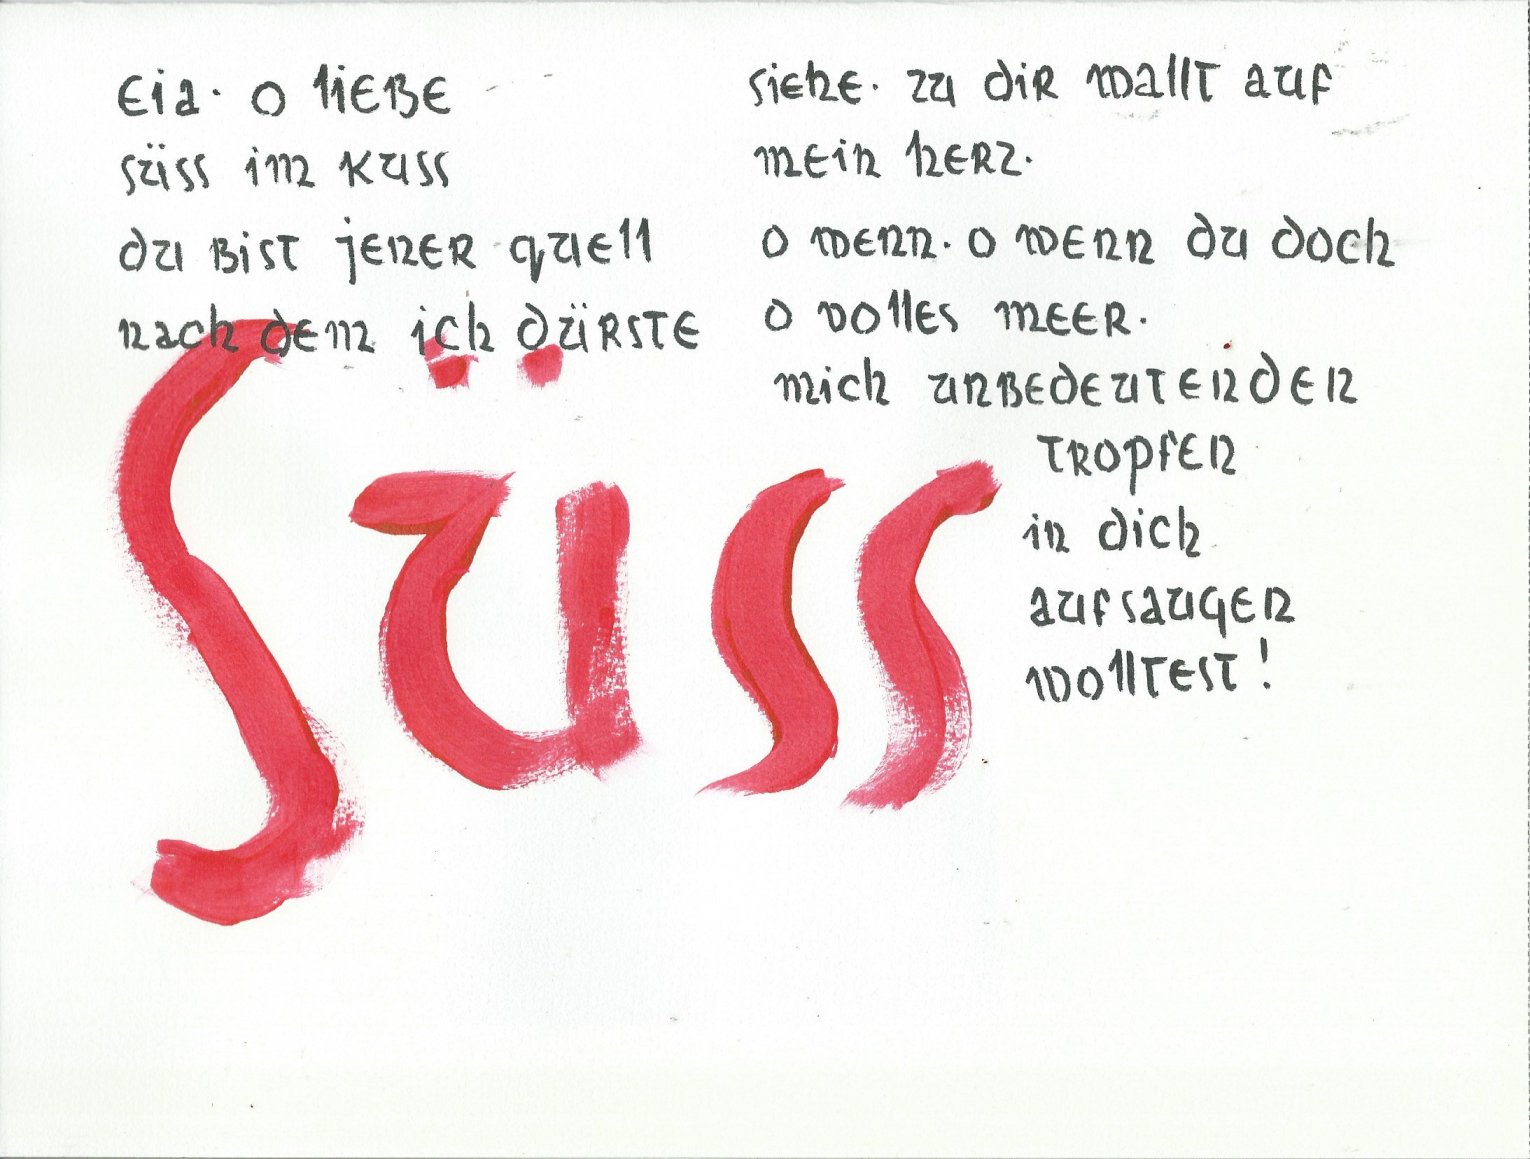 Eia. O liebe
süss im kuss
du bist jener quell
nach dem ich dürste
siehe. zu dir wallt auf
mein herz.
o wenn. o wenn du doch
o volles meer.
mich unbedeutenden
tropfen
in dich
aufsaugen
wolltest!
Süss